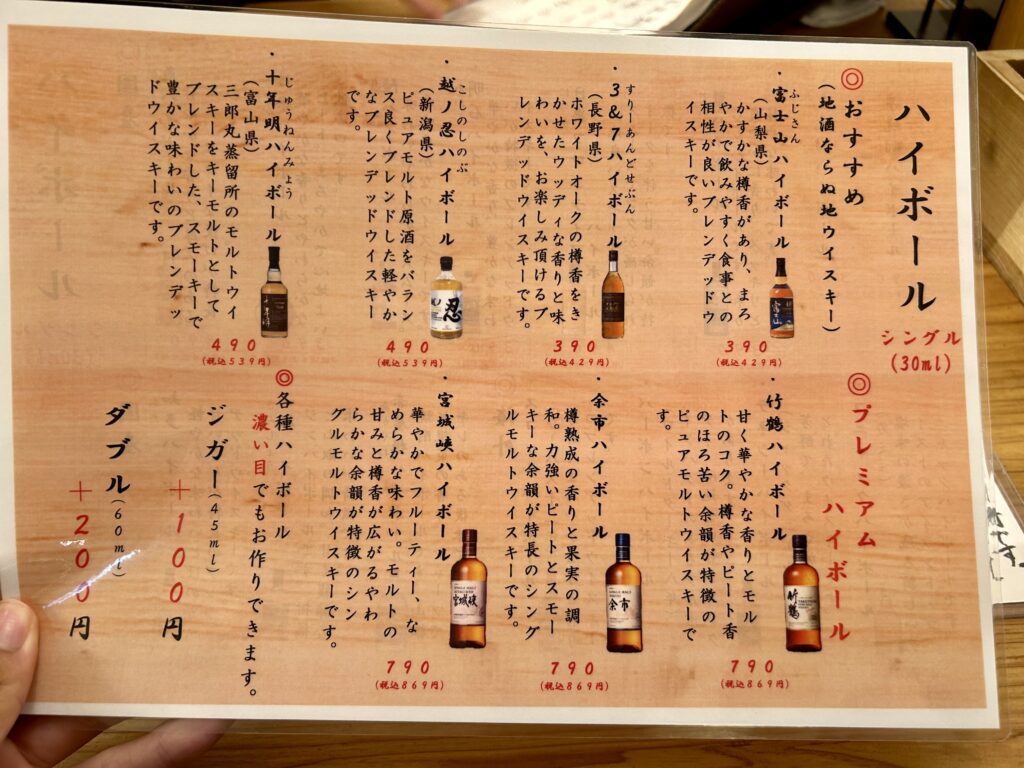 ハイボール
シングル
(30ml)
◎おすすめ
(地酒ならぬ地ウイスキー)
・富士山ハイボール
ふじさん
(山梨県)
かすかな樽香があり、まろ
やかで飲みやすく食事との
相性が良いブレンデッドウ
イスキーです。
富士山
390
(税込429円)
・3&7ハイボール
すりーあんどせぶん
(長野県)
ホワイトオークの樽香をき
かせたウッディな香りと味
わいを、お楽しみ頂けるブ
レンデッドウイスキーです。
390
(税込429円)
・越ノ忍ハイボール
こしのしのぶ
(新潟県)
ピュアモルト原酒をバラン
ス良くブレンドした軽やか
なブレンデッドウイスキー
です。
忍
490
(税込539円)
・十年明ハイボール
じゅうねんみょう
(富山県)
三郎丸蒸留所のモルトウイ
スキーをキーモルトとして
ブレンドした、スモーキーで
豊かな味わいのブレンデッ
ドウイスキーです。
十年明
490
(税込539円)
◎プレミアム
ハイボール
・竹鶴ハイボール
甘く華やかな香りとモル
トのコク。樽香やピート香
のほろ苦い余韻が特徴の
ピュアモルトウイスキーで
す。
竹鶴
790
(税込869円)
・余市ハイボール
樽熟成の香りと果実の調
和。力強いピートとスモー
キーな余韻が特長のシング
ルモルトウイスキーです。
余市
790
(税込869円)
・宮城峡ハイボール
華やかでフルーティー、な
めらかな味わい。モルトの
甘みと樽香が広がるやわ
らかな余韻が特徴のシン
グルモルトウイスキーです。
宮城峡
790
(税込869円)
◎各種ハイボール
濃い目でもお作りできます。
ジガー(45ml)
+100円
ダブル(60ml)
+200円